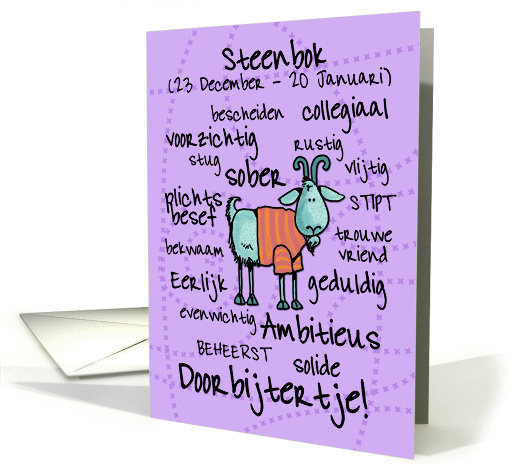 Steenbok
(23 December - 20 Januari)
bescheiden collegiaal
voorzichtig rustig
stug vlijtig
sober
plichts STIPT
besef
trouwe
bekwaam vriend
Eerlijk geduldig
evenwichtig
Ambitieus
BEHEERST solide
Doorbijtertje!